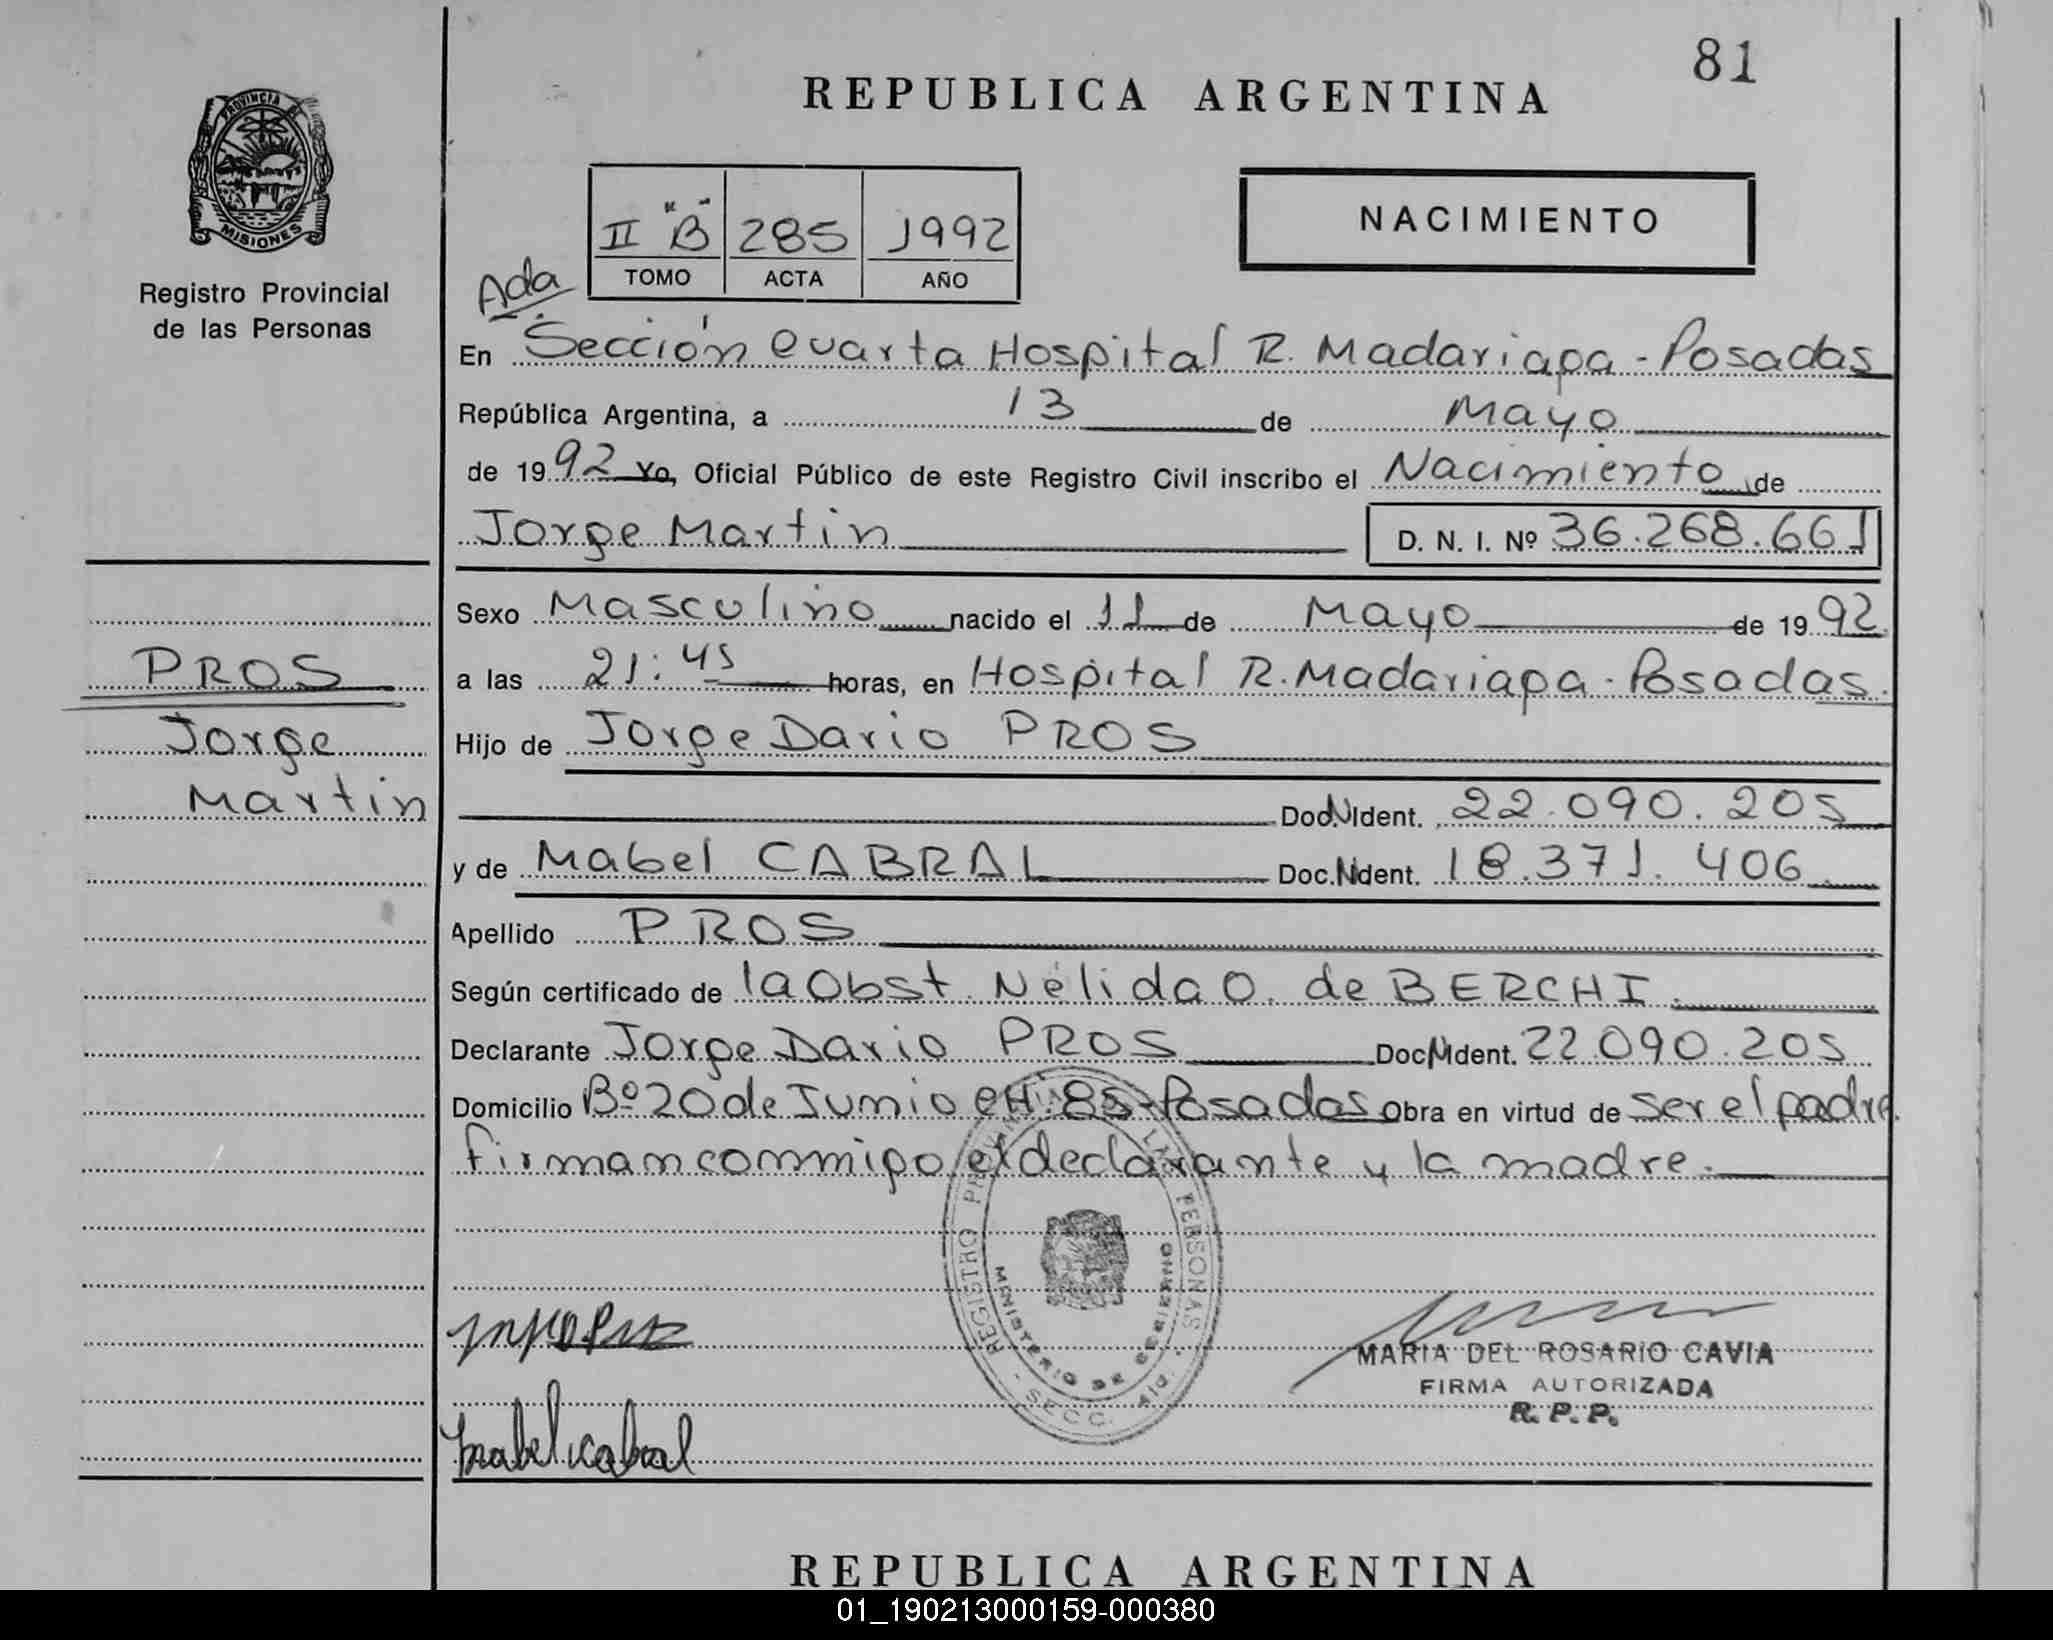 81
REPUBLICA ARGENTINA
PROVINCIA DE
MISIONES
Registro Provincial
de las Personas
II "B" 285 1992
TOMO ACTA AÑO
NACIMIENTO
Ada
En Sección Cuarta Hospital R. Madariaga - Posadas
República Argentina, a 13 de Mayo
de 1992 Yo, Oficial Público de este Registro Civil inscribo el Nacimiento de
Jorge Martin D. N. I. Nº 36.268.661
Sexo Masculino nacido el 11 de Mayo de 1992
a las 21:45 horas, en Hospital R. Madariaga - Posadas.
Hijo de Jorge Dario PROS
PROS
Jorge
Martin
Doc.N.Ident. 22.090.205
y de Mabel CABRAL Doc.N.Ident. 18.371.406
Apellido PROS
Según certificado de la Obst. Nélida O. de BERCHI.
Declarante Jorge Dario PROS Doc.N.Ident. 22.090.205
Domicilio Bº 20 de Junio CH. 85 - Posadas Obra en virtud de ser el padre
firman conmigo el declarante y la madre.
REGISTRO PERSONAS
MINISTERIO DE GOBIERNO
SECC. 4ta.
MARIA DEL ROSARIO CAVIA
FIRMA AUTORIZADA
R. P. P.
Mabel Cabral
REPUBLICA ARGENTINA
01_190213000159-000380